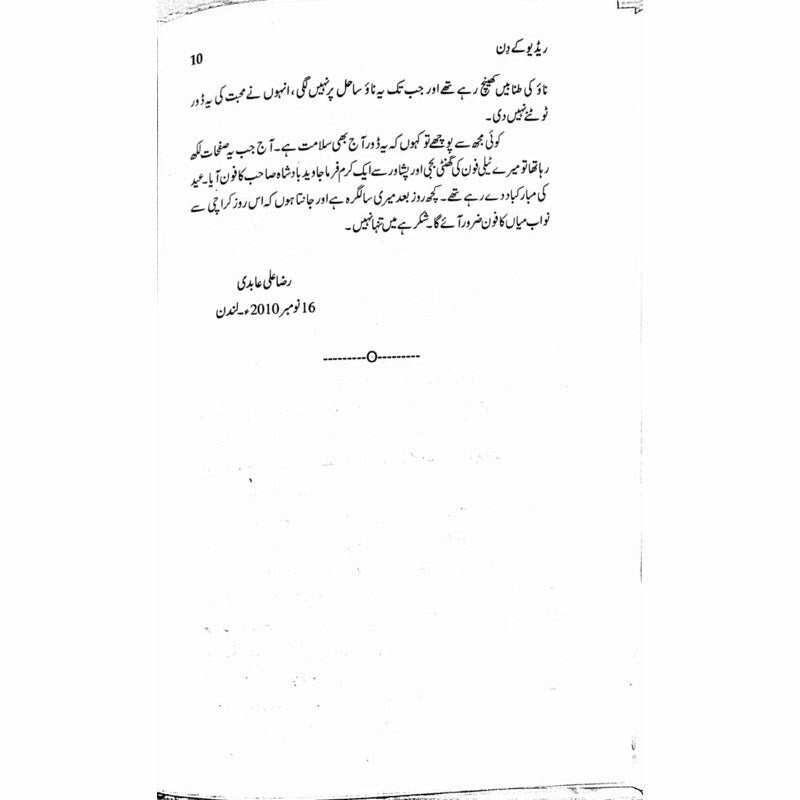 ریڈیو کے دِن
10
ناؤ کی طنابیں کھینچ رہے تھے اور جب تک یہ ناؤ ساحل پر نہیں لگی، انہوں نے محبت کی یہ ڈور
ٹوٹنے نہیں دی۔
کوئی مجھ سے پوچھے تو کہوں کہ یہ ڈور آج بھی سلامت ہے۔ آج جب یہ صفحات لکھ
رہا تھا تو میرے ٹیلی فون کی گھنٹی بجی اور پشاور سے ایک کرم فرما جاوید بادشاہ صاحب کا فون آیا۔ عید
کی مبارکباد دے رہے تھے۔ کچھ روز بعد میری سالگرہ ہے اور جانتا ہوں کہ اس روز کراچی سے
نواب میاں کا فون ضرور آئے گا۔ شکر ہے میں تنہا نہیں۔
رضا علی عابدی
16 نومبر 2010ء۔ لندن
---------O---------